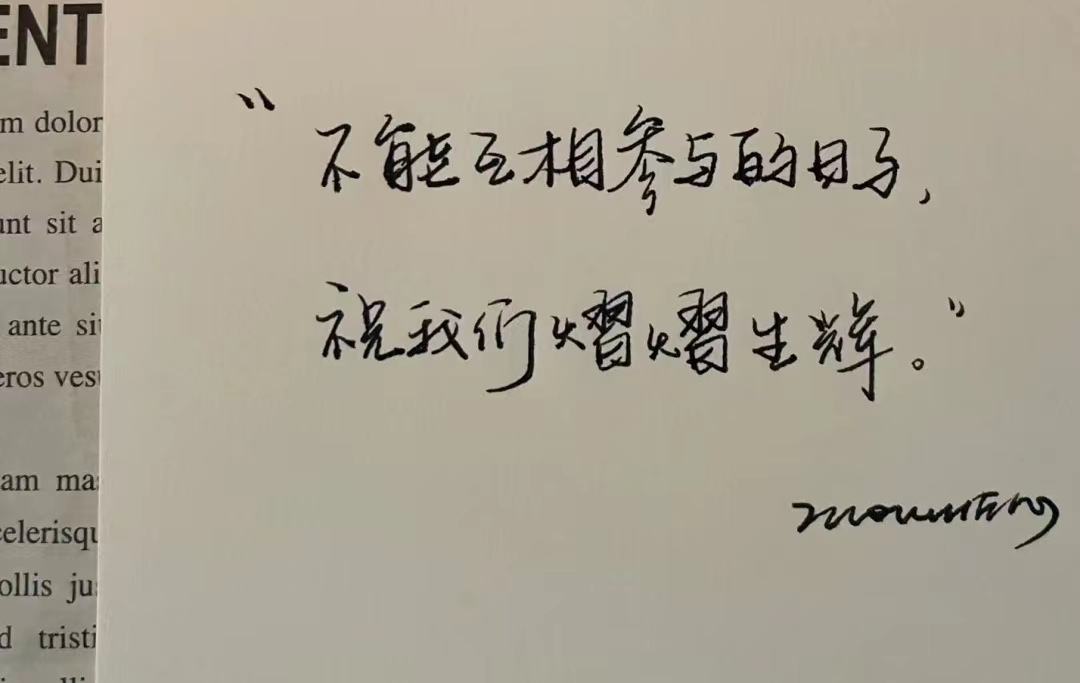 ENT
m dolor
elit. Dui
unt sit a
uctor ali
ante sit
eros vest
“不能互相参与的日子，
祝我们熠熠生辉。”
am mas
celerisqu
ollis jus
d tristi